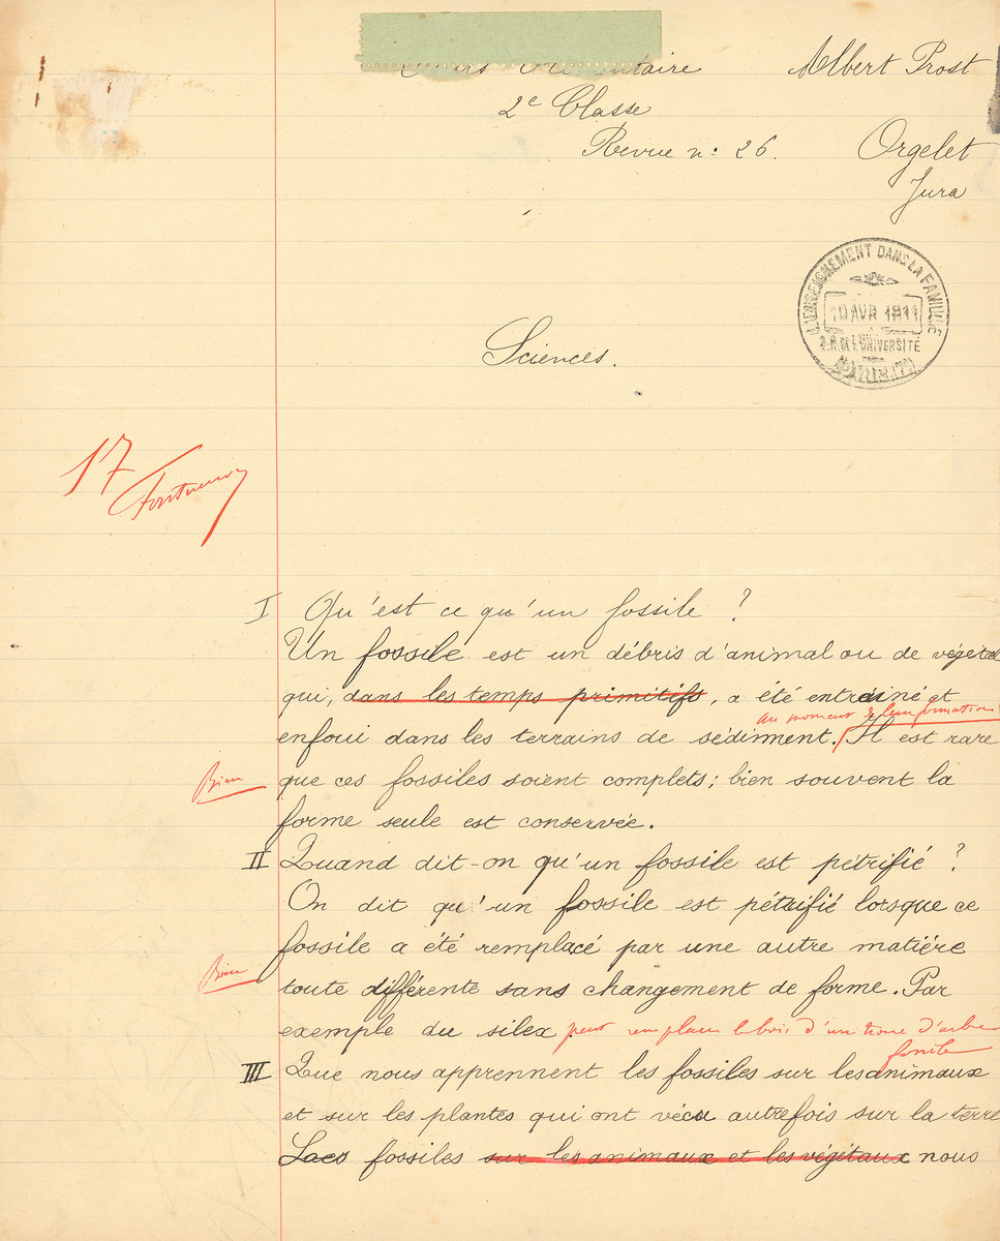 Albert Prost
2e Classe
Revue n: 26.
Orgelet
Jura
L'ENSEIGNEMENT DANS LA FAMILLE
10 AVR 1911
DE L'UNIVERSITÉ
Sciences.
17
I Qu'est ce qu'un fossile ?
Un fossile est un débris d'animal ou de végétal
qui, dans les temps primitifs, a été entrainé et
au moment de leur formation
enfoui dans les terrains de sédiment. Il est rare
Bien
que ces fossiles soient complets; bien souvent la
forme seule est conservée.
II Quand dit-on qu'un fossile est pétrifié ?
On dit qu'un fossile est pétrifié lorsque ce
fossile a été remplacé par une autre matiére
Bien
toute différente sans changement de forme. Par
exemple du silex peut remplacer le bois d'un tronc d'arbre
fossile
III Que nous apprennent les fossiles sur les animaux
et sur les plantes qui ont vécu autrefois sur la terre
fossiles sur les animaux et les végétaux nous